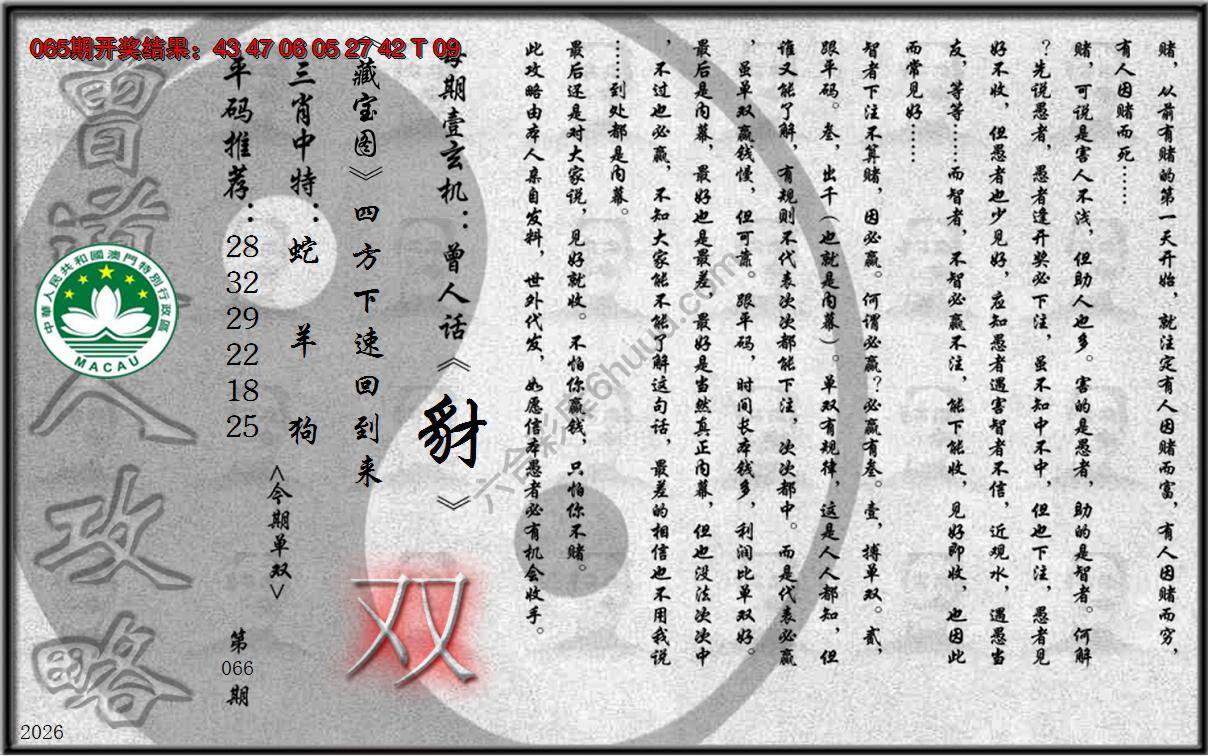 065期开奖结果：43 47 06 05 27 42 T 09
赌，从前有赌的第一天开始，就注定有人因赌而富，有人因赌而穷，
有人因赌而死……
赌，可说是害人不浅，但助人也多。害的是愚者，助的是智者。何解
？先说愚者，愚者逢开奖必下注，虽不知中不中，但也下注，愚者见
好不收，但愚者也少见好，应知愚者遇害智者不信，近观水，遇愚当
友，等等……而智者，不智必赢不注，能下能收，见好即收，也因此
而常见好……
智者下注不算赌，因必赢。何谓必赢？必赢有叁。壹，搏单双。贰，
跟平码。叁，出千（也就是内幕）。单双有规律，这是人人都知，但
谁又能了解，有规则不代表次次都能下注，次次都中。而是代表必赢
，虽单双赢钱慢，但可靠。跟平码，时间长本钱多，利润比单双好。
最后是内幕，最好也是最差，最好是当然真正内幕，但也没法次次中
，不过也必赢，不知大家能不能了解这句话，最差的相信也不用我说
……到处都是内幕。
最后还是对大家说，见好就收。不怕你赢钱，只怕你不赌。
此攻略由本人亲自发料，世外代发，如愿信本愚者必有机会收手。
每期壹玄机：曾人话《豺》
《藏宝图》四方下速回到来
双
三肖中特：蛇 羊 狗
<今期单双>
平码推荐：
28
32
29
22
18
25
第
066
期
曾道人攻略
中華人民共和國澳門特別行政區
MACAU
六合彩库6huuu.com
2026